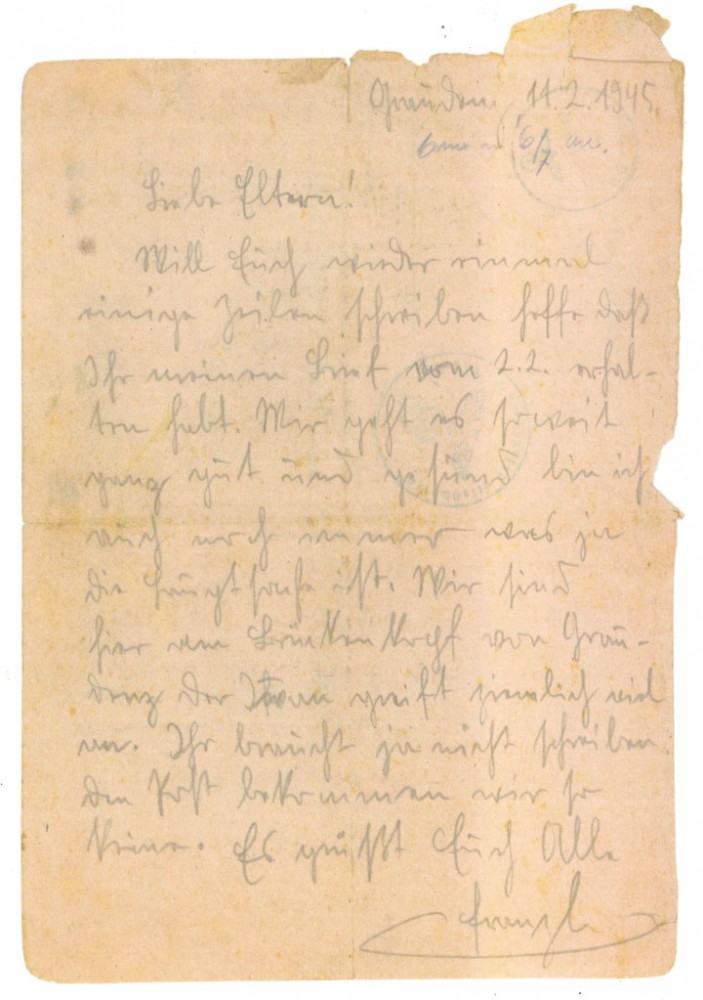 Graudenz 11.2.1945.
6/7
Liebe Eltern!
Will Euch wieder einmal
einige Zeilen schreiben hoffe daß
Ihr meinen Brief vom 2.2. erhal-
ten habt. Mir geht es soweit
ganz gut und gesund bin ich
auch noch immer was ja
die Hauptsache ist. Wir sind
hier am Brückenkopf von Grau-
denz der Iwan greift ziemlich viel
an. Ihr braucht ja nicht schreiben
den Post bekommen wir so
keine. Es grüßt Euch Alle
Franzl